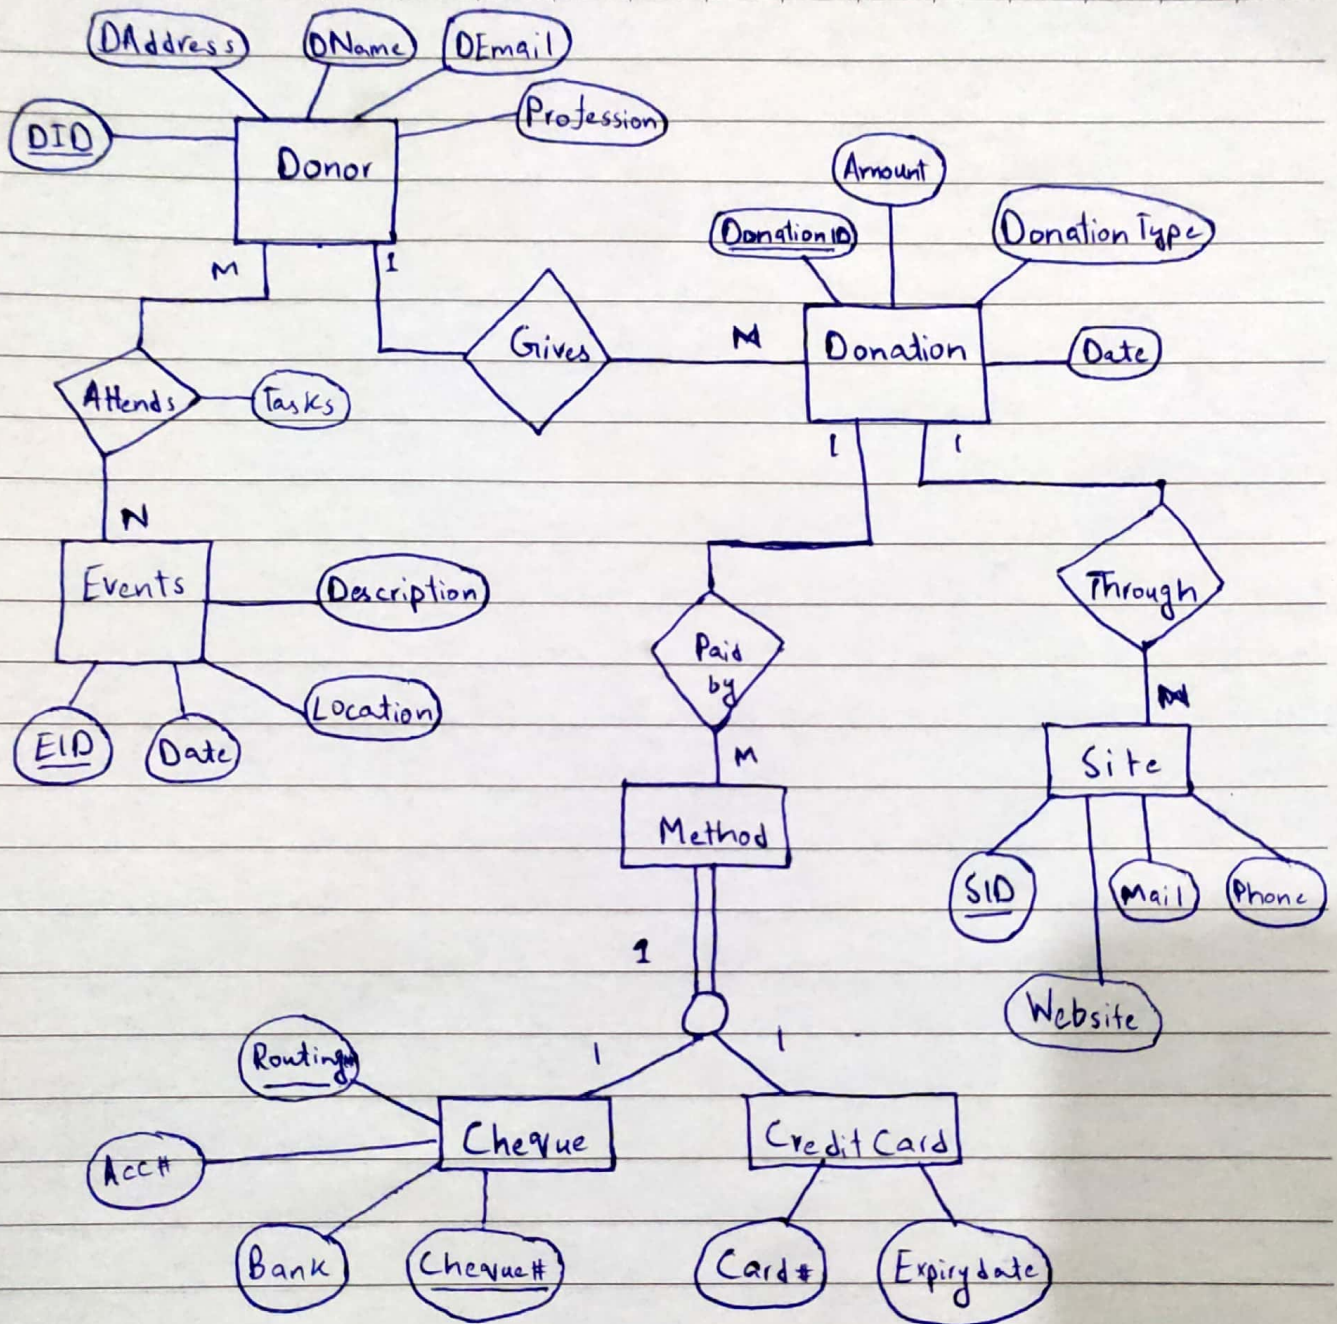 DAddress
DName
DEmail
DID
Profession
Donor
Amount
DonationID
DonationType
M
1
Gives
N
Donation
Date
Attends
Tasks
1
1
N
Events
Description
Through
Paid
by
Location
N
EID
Date
M
Site
Method
SID
Mail
Phone
1
Website
1
1
Routing#
Cheque
CreditCard
Acc#
Bank
Cheque#
Card#
Expirydate